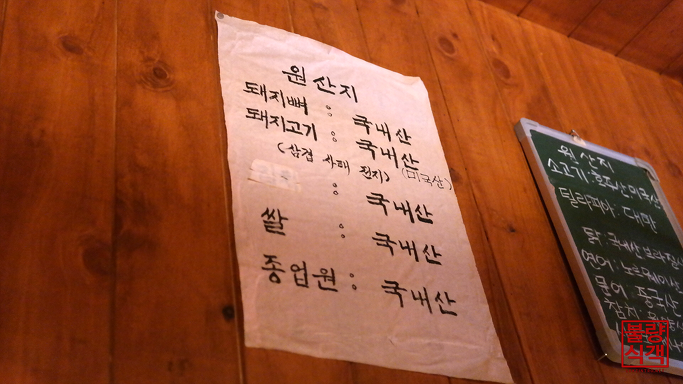 원산지
돼지뼈 : 국내산
돼지고기 : 국내산
(삼겹 사태 전지) (미국산)
: 국내산
쌀 : 국내산
종업원 : 국내산
원산지
소고기: 호주산 미국산
틸라피아: 대만
닭: 국내산
연어: 노르웨이산
문어: 중국산
참치:
불량식객